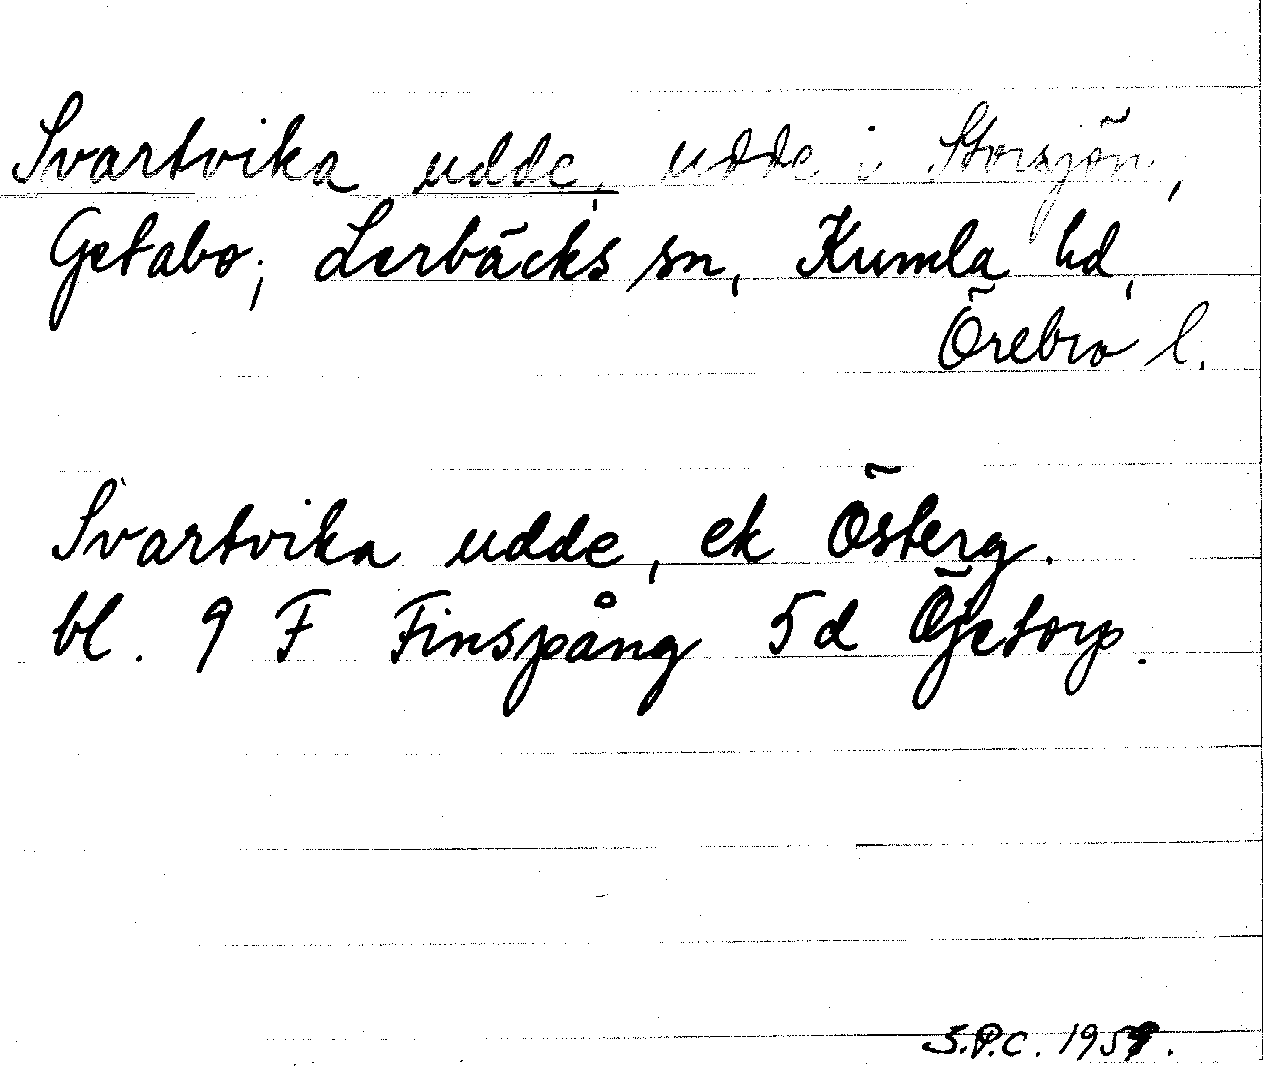 Svartvika udde, udde i Storsjön,
Getabo, Lerbäcks sn, Kumla hd,
Örebro l.
Svartvika udde, ek Österg.
bl. 9 F Finspång 5d Öjetorp.
S.P.C.